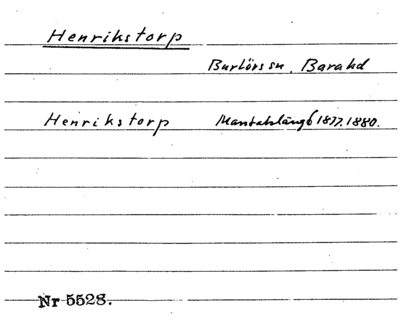 Henrikstorp
Burlövs sn. Bara hd
Henrikstorp Mantalslängd 1877. 1880.
Nr 5528.